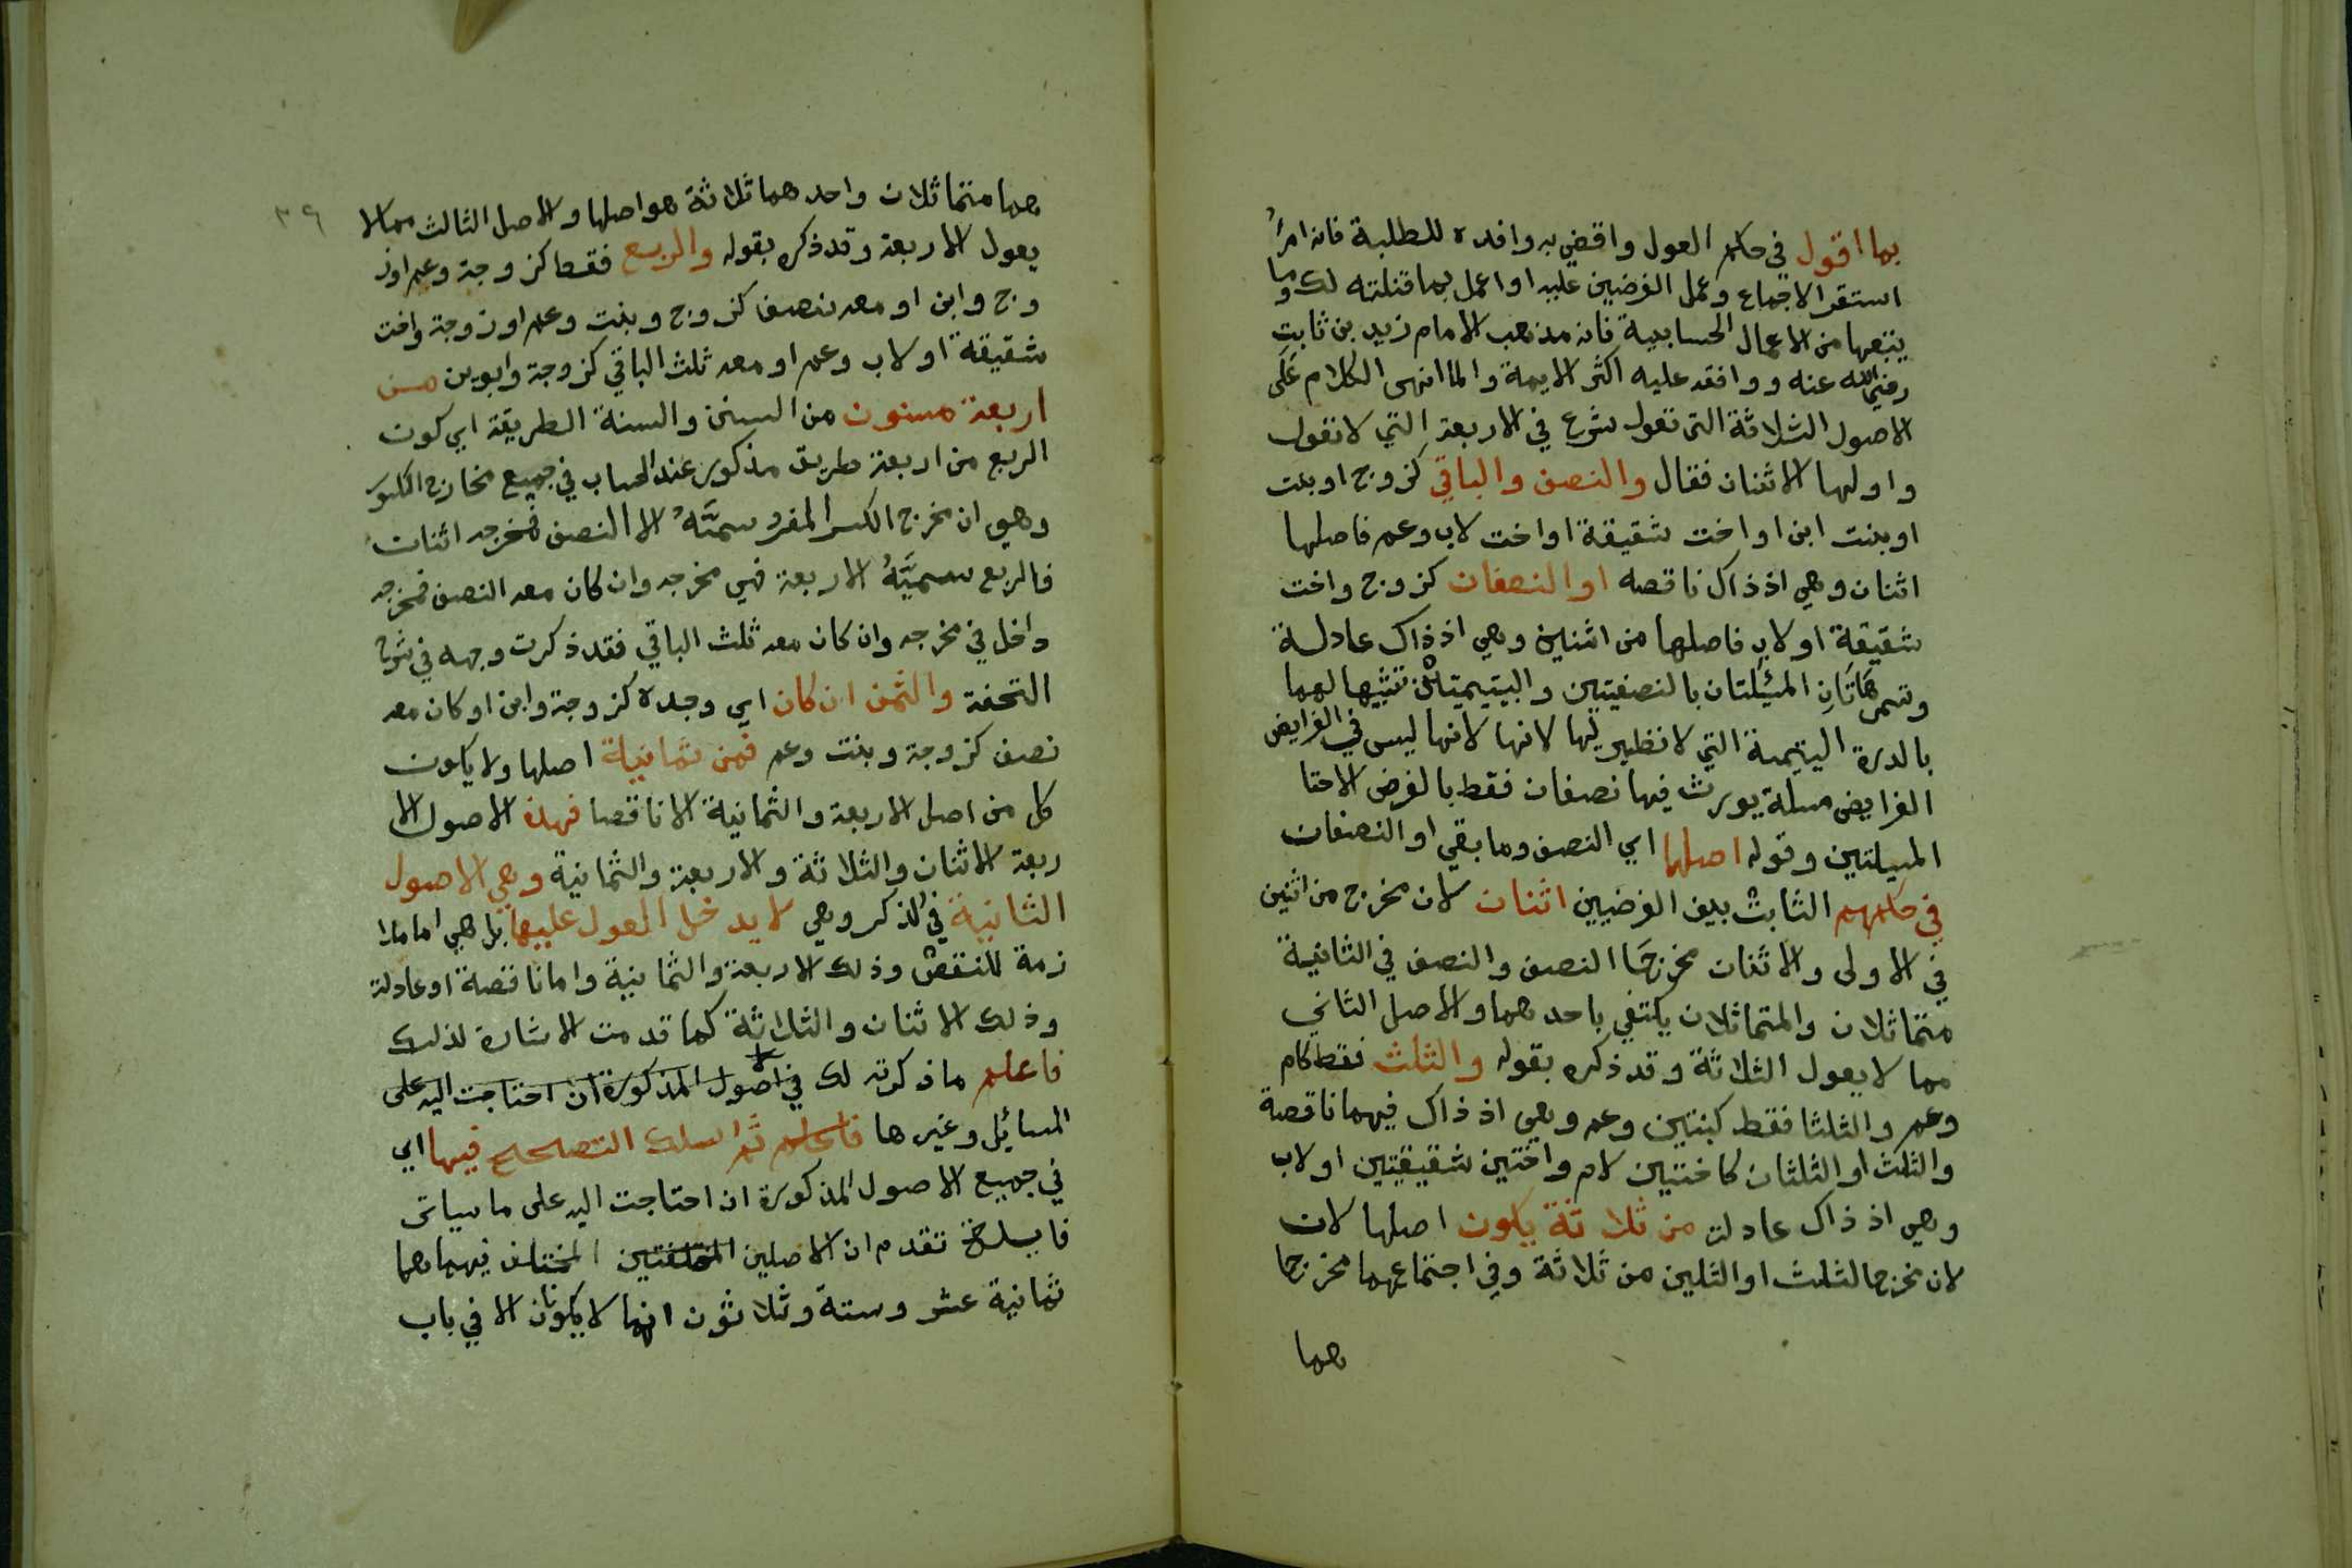 بما اقول في حكم العول واقضي به وافده للطلبة فانه امر
استقر الاجماع وعمل الفرضيين عليه او اعمل بما قلته لك وما
يتبعها من الاعمال الحسابية فانه مذهب الامام زيد بن ثابت
رضي الله عنه ووافقه عليه اكثر الايمة ولما انهى الكلام على
الاصول الثلاثة التي تعول شرع في الاربعة التي لا تعول
واولها الاثنان فقال والنصف والباقي كزوج او بنت
او بنت ابن او اخت شقيقة او اخت لاب وعم فاصلها
اثنان وهي اذ ذاك ناقصه او النصفان كزوج واخت
شقيقة او لاب فاصلها من اثنين وهي اذ ذاك عادلة
وتسمى هاتان المسئلتان بالنصفيتين واليتيمتين تشبيها لهما
بالدرة اليتيمة التي لا نظير لها لانها لانها ليس في الفرايض
الفرايض مسلة يورث فيها نصفان فقط بالفرض الاحتا
المسيلتين وقوله اصلها اي النصف وما بقي او النصفان
في حكمهم الثابت بين الفرضيين اثنان لان مخرج من اثنين
في الاولى والاثنان مخرجا النصف والنصف في الثانية
متماثلان والمتماثلان يكتفي باحدهما والاصل الثاني
مما لا يعول الثلاثة وقد ذكره بقوله والثلث فقط كام
وعم والثلثا فقط كبنتين وعم وهي اذ ذاك فيهما ناقصة
والثلث او الثلثان كاختين لام واختين شقيقتين او لاب
وهي اذ ذاك عادلة من ثلاثة يكون اصلها لان
لان مخرج الثلث او الثلثين من ثلاثة وفي اجتماعهما مخرجا
هما
٣٩
هما متماثلان واحدهما ثلاثة هو اصلها والاصل الثالث مما لا
يعول الاربعة وقد ذكره بقوله والربع فقط كزوجة وعم او ز
وج وابن او معه نصف كزوج وبنت وعم او زوجة واخت
شقيقة او لاب وعم او معه ثلث الباقي كزوجة وابوين من
اربعة مسنون من السنن والسنة الطريقة اي كون
الربع من اربعة طريق مذكور عند الحساب في جميع مخارج الكسو
وهي ان مخرج الكسر المفرد سميّه الا النصف فمخرجه اثنان
فالربع سميّه الاربعة فهي مخرجه وان كان معه النصف فمخرجه
داخل في مخرجه وان كان معه ثلث الباقي فقد ذكرت وجهه في شرح
التحفة والثمن ان كان اي وجده كزوجة وابن او كان معه
نصف كزوجة وبنت وعم فمن ثمانية اصلها ولا يكون
كل من اصل الاربعة والثمانية الا ناقصا فهذه الاصول الا
ربعة الاثنان والثلاثة والاربعة والثمانية وهي الاصول
الثانية في الذكر وهي لا يدخل العول عليها بل هي اما ملا
زمة للنقص وذلك الاربعة والثمانية واما ناقصة او عادلة
وذلك الاثنان والثلاثة كما قدمت الاشارة لذلك
فاعلم ما ذكرته لك في اصول المذكورة ان احتاجت اليه على
المسائل وغيرها فاعلم ثم اسلك التصحيح فيها اي
في جميع الاصول المذكورة ان احتاجت اليه على ما سياتي
تقدم ان الاصلين المختلفتين المختلف فيهما هما
ثمانية عشر وستة وثلاثون انهما لا يكونان الا في باب